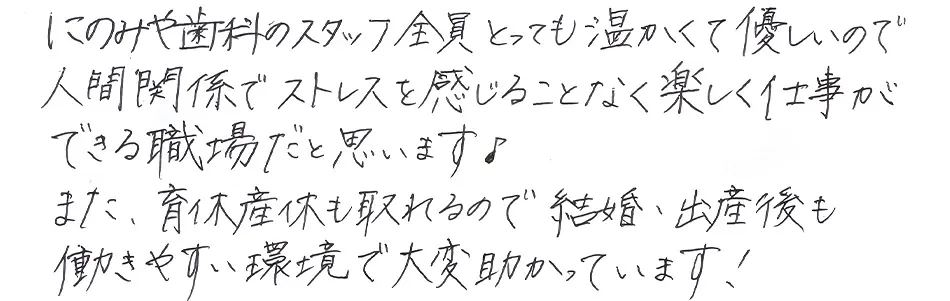 にのみや歯科のスタッフ全員とっても温かくて優しいので
人間関係でストレスを感じることなく楽しく仕事が
できる職場だと思います♪
また、育休産休も取れるので結婚、出産後も
働きやすい環境で大変助かっています！